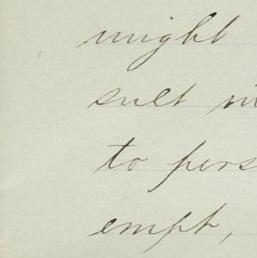 might
sult in
to pers
empt,